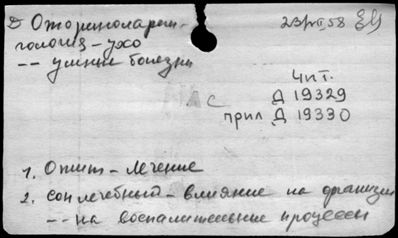 Д Оториноларин-
гология - ухо
-- ушные болезни
23/XII 58
Чит.
Д 19329
прил Д 19330
АС
1. Опыт - лечение
2. Сон лечебный - влияние на
-- на воспалительные процессы